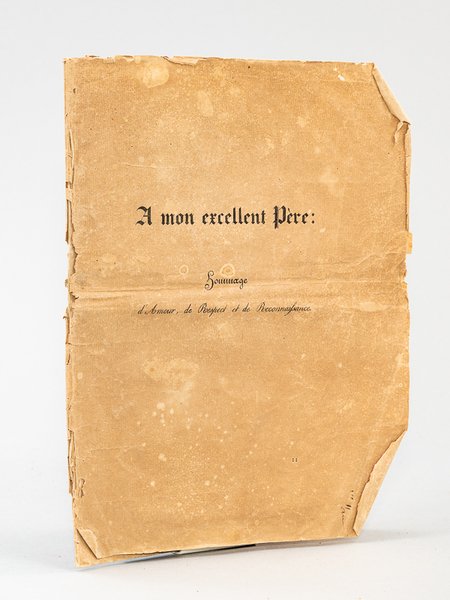 A mon excellent Père:
Hommage
d'Amour, de Respect et de Reconnaissance.